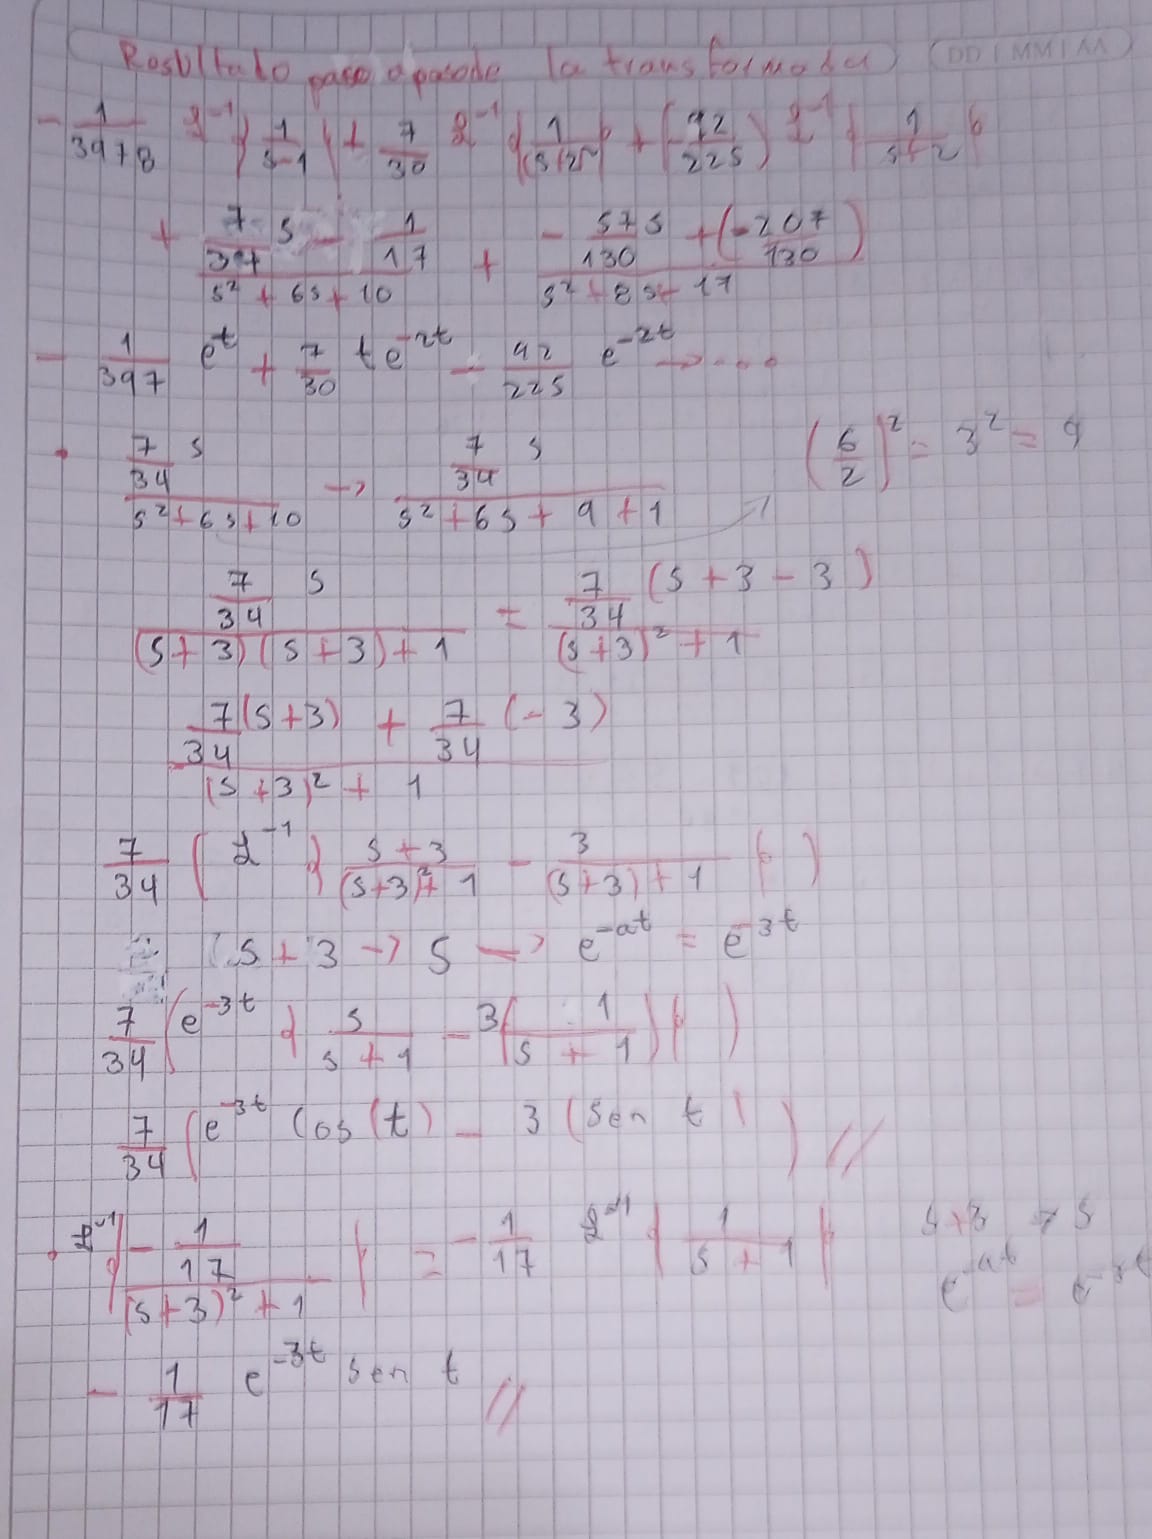 Resultado paso a paso de la transformada (DD/MM/AA)
- 1/3978 ℒ⁻¹{1/s-1} + 7/30 ℒ⁻¹{1/(s+2)²} + (-92/225) ℒ⁻¹{1/s+2}
+ (7/34 s - 1/17)/(s² + 6s + 10) + (- 575/130 + (-207/130))/(s² + 8s + 17)
- 1/397 e^t + 7/30 te^-2t - 92/225 e^-2t → ...
• (7/34 s)/(s² + 6s + 10) → (7/34 s)/(s² + 6s + 9 + 1) (6/2)² = 3² = 9
(7/34 s)/((s + 3)(s + 3) + 1) = (7/34 (s + 3 - 3))/((s + 3)² + 1)
(7/34 (s + 3) + 7/34 (- 3))/((s + 3)² + 1)
7/34 ( ℒ⁻¹ { (s + 3)/((s+3)² + 1) - 3/((s+3) + 1) } )
(s + 3 → s → e^-at = e^-3t
7/34 (e^-3t { s/(s + 1) - 3(1/(s + 1)) } )
7/34 (e^-3t Cos(t) - 3 (Sen t) ) //
• ℒ⁻¹ { (- 1/17)/((s + 3)² + 1) } = - 1/17 ℒ⁻¹ { 1/(s + 1) } s+3 → s
e^-at = e^-3t
- 1/17 e^-3t sen t //